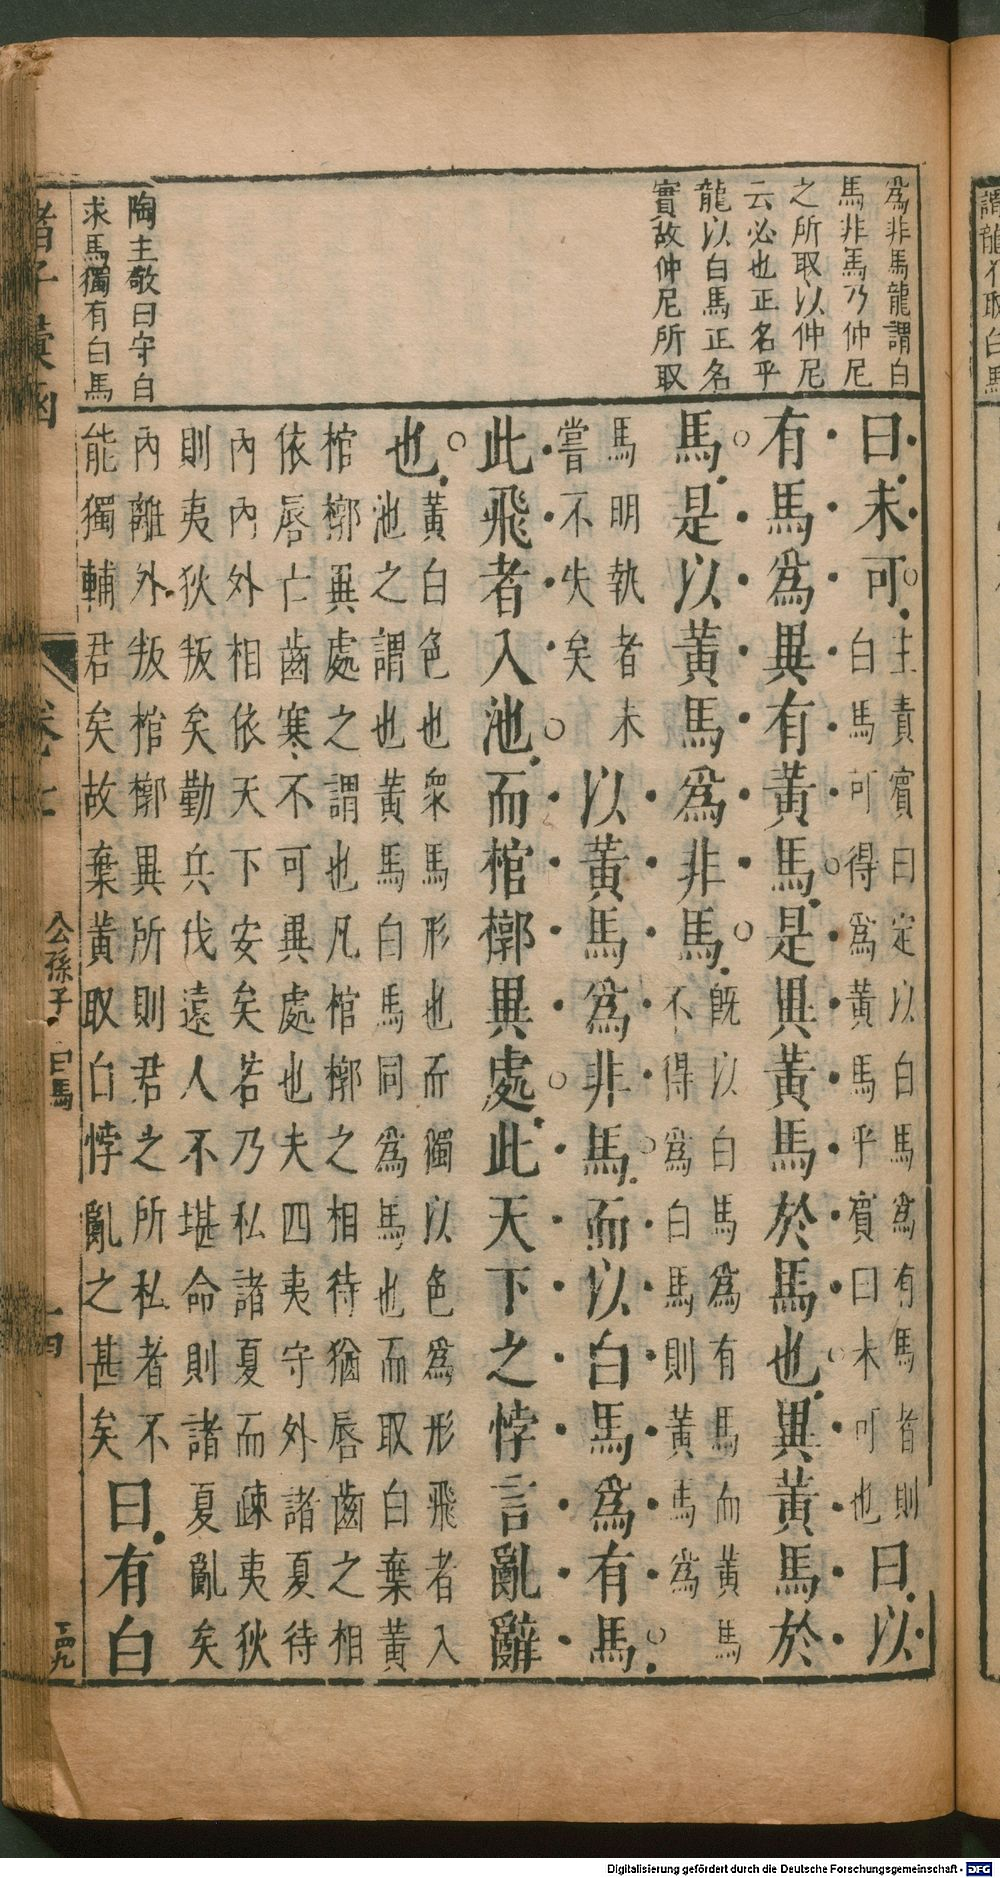 爲非馬龍謂白
馬非馬乃仲尼
之所取以仲尼
云必也正名乎
龍以白馬正名
實故仲尼所取
陶主敬曰守白
求馬獨有白馬
曰未可
主責賓曰定以白馬爲有馬者則
白馬可得爲黃馬乎賓曰未可也
曰以
有馬爲異有黃馬是異黃馬於馬也異黃馬於
馬是以黃馬爲非馬
旣以白馬爲有馬而黃馬
不得爲白馬則黃馬爲
馬明執者未
嘗不失矣
以黃馬爲非馬而以白馬爲有馬
此飛者入池而棺槨異處此天下之悖言亂辭
也
黃白色也衆馬形也而獨以色爲形飛者入
池之謂也黃馬白馬同爲馬也而取白棄黃
棺槨異處之謂也凡棺槨之相待猶唇齒之相
依唇亡齒寒不可異處也夫四夷守外諸夏待
內內外相依天下安矣若乃私諸夏而疎夷狄
則夷狄叛矣勤兵伐遠人不堪命則諸夏亂矣
內離外叛棺槨異所則君之所私者不
能獨輔君矣故棄黃取白悖亂之甚矣
曰有白
諸子彙函
卷七
公孫子
白馬
DFG
Digitalisierung gefördert durch die Deutsche Forschungsgemeinschaft